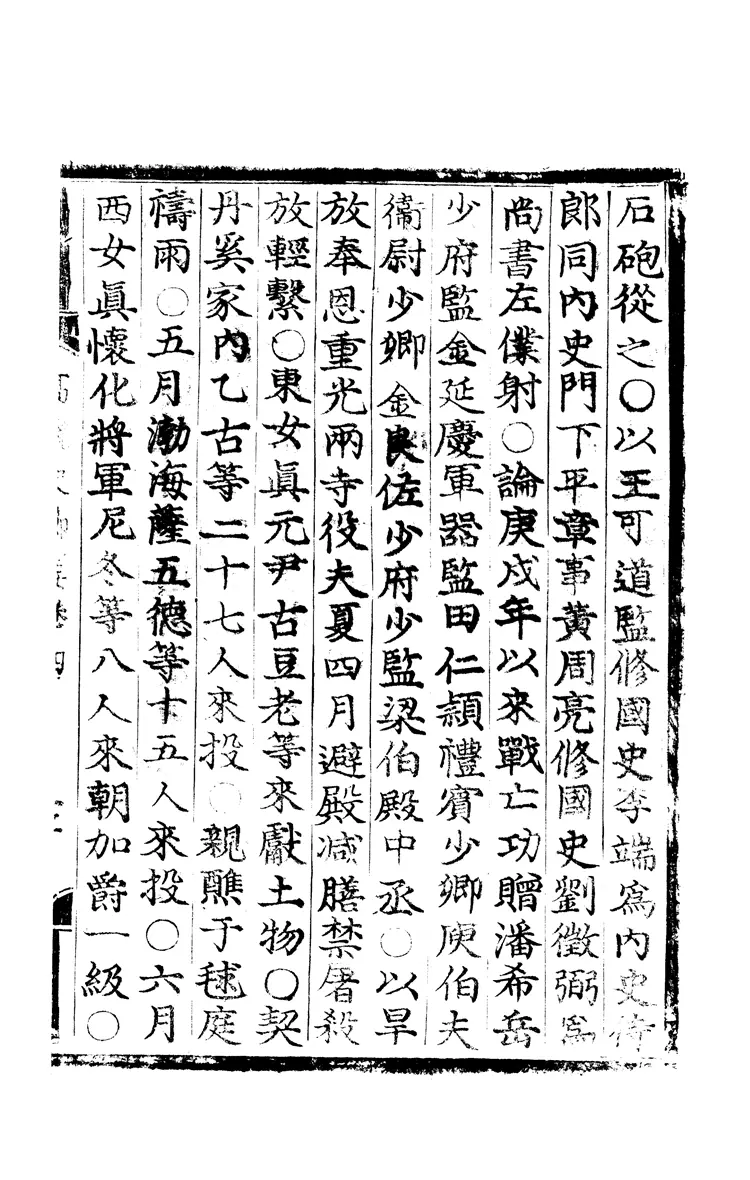 石砲從之○以王可道監修國史李端爲內史侍
郎同內史門下平章事黃周亮修國史劉徵弼爲
尚書左僕射○論庚戌年以來戰亡功贈潘希岳
少府監金延慶軍器監田仁穎禮賓少卿庾伯夫
衛尉少卿金良佐少府少監梁伯殿中丞○以旱
放奉恩重光兩寺役夫夏四月避殿减膳禁屠殺
放輕繫○東女眞元尹古豆老等來獻土物○契
丹奚家內乙古等二十七人來投○親醮于毬庭
禱雨○五月渤海薩五德等十五人來投○六月
西女眞懷化將軍尼冬等八人來朝加爵一級○
卷四